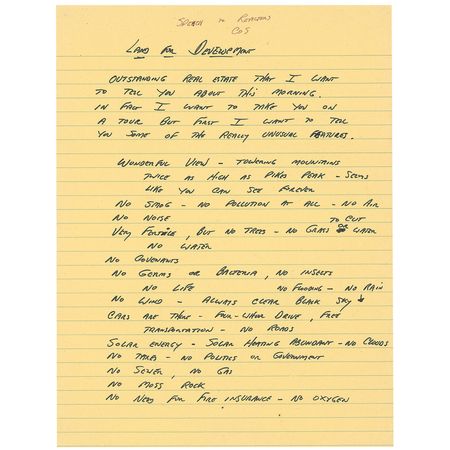 SPEECH TO REALTORS
COS
LAND FOR DEVELOPMENT
OUTSTANDING REAL ESTATE THAT I WANT
TO TELL YOU ABOUT THIS MORNING.
IN FACT I WANT TO TAKE YOU ON
A TOUR BUT FIRST I WANT TO TELL
YOU SOME OF THE REALLY UNUSUAL FEATURES.
WONDERFUL VIEW - TOWERING MOUNTAINS
TWICE AS HIGH AS PIKES PEAK - SEEMS
LIKE YOU CAN SEE FOREVER
NO SMOG - NO POLLUTION AT ALL - NO AIR
NO NOISE
VERY FERTILE, BUT NO TREES - NO GRASS TO CUT OR WATER
NO WATER
NO COVENANTS
NO GERMS OR BACTERIA, NO INSECTS
NO LIFE NO FLOODING - NO RAIN
NO WIND - ALWAYS CLEAR BLACK SKY
CARS ARE THERE - FOUR-WHEEL DRIVE, FREE
TRANSPORTATION - NO ROADS
SOLAR ENERGY - SOLAR HEATING ABUNDANT - NO CLOUDS
NO TAXES - NO POLITICS OR GOVERNMENT
NO SEWER, NO GAS
NO MOSS ROCK
NO NEED FOR FIRE INSURANCE - NO OXYGEN